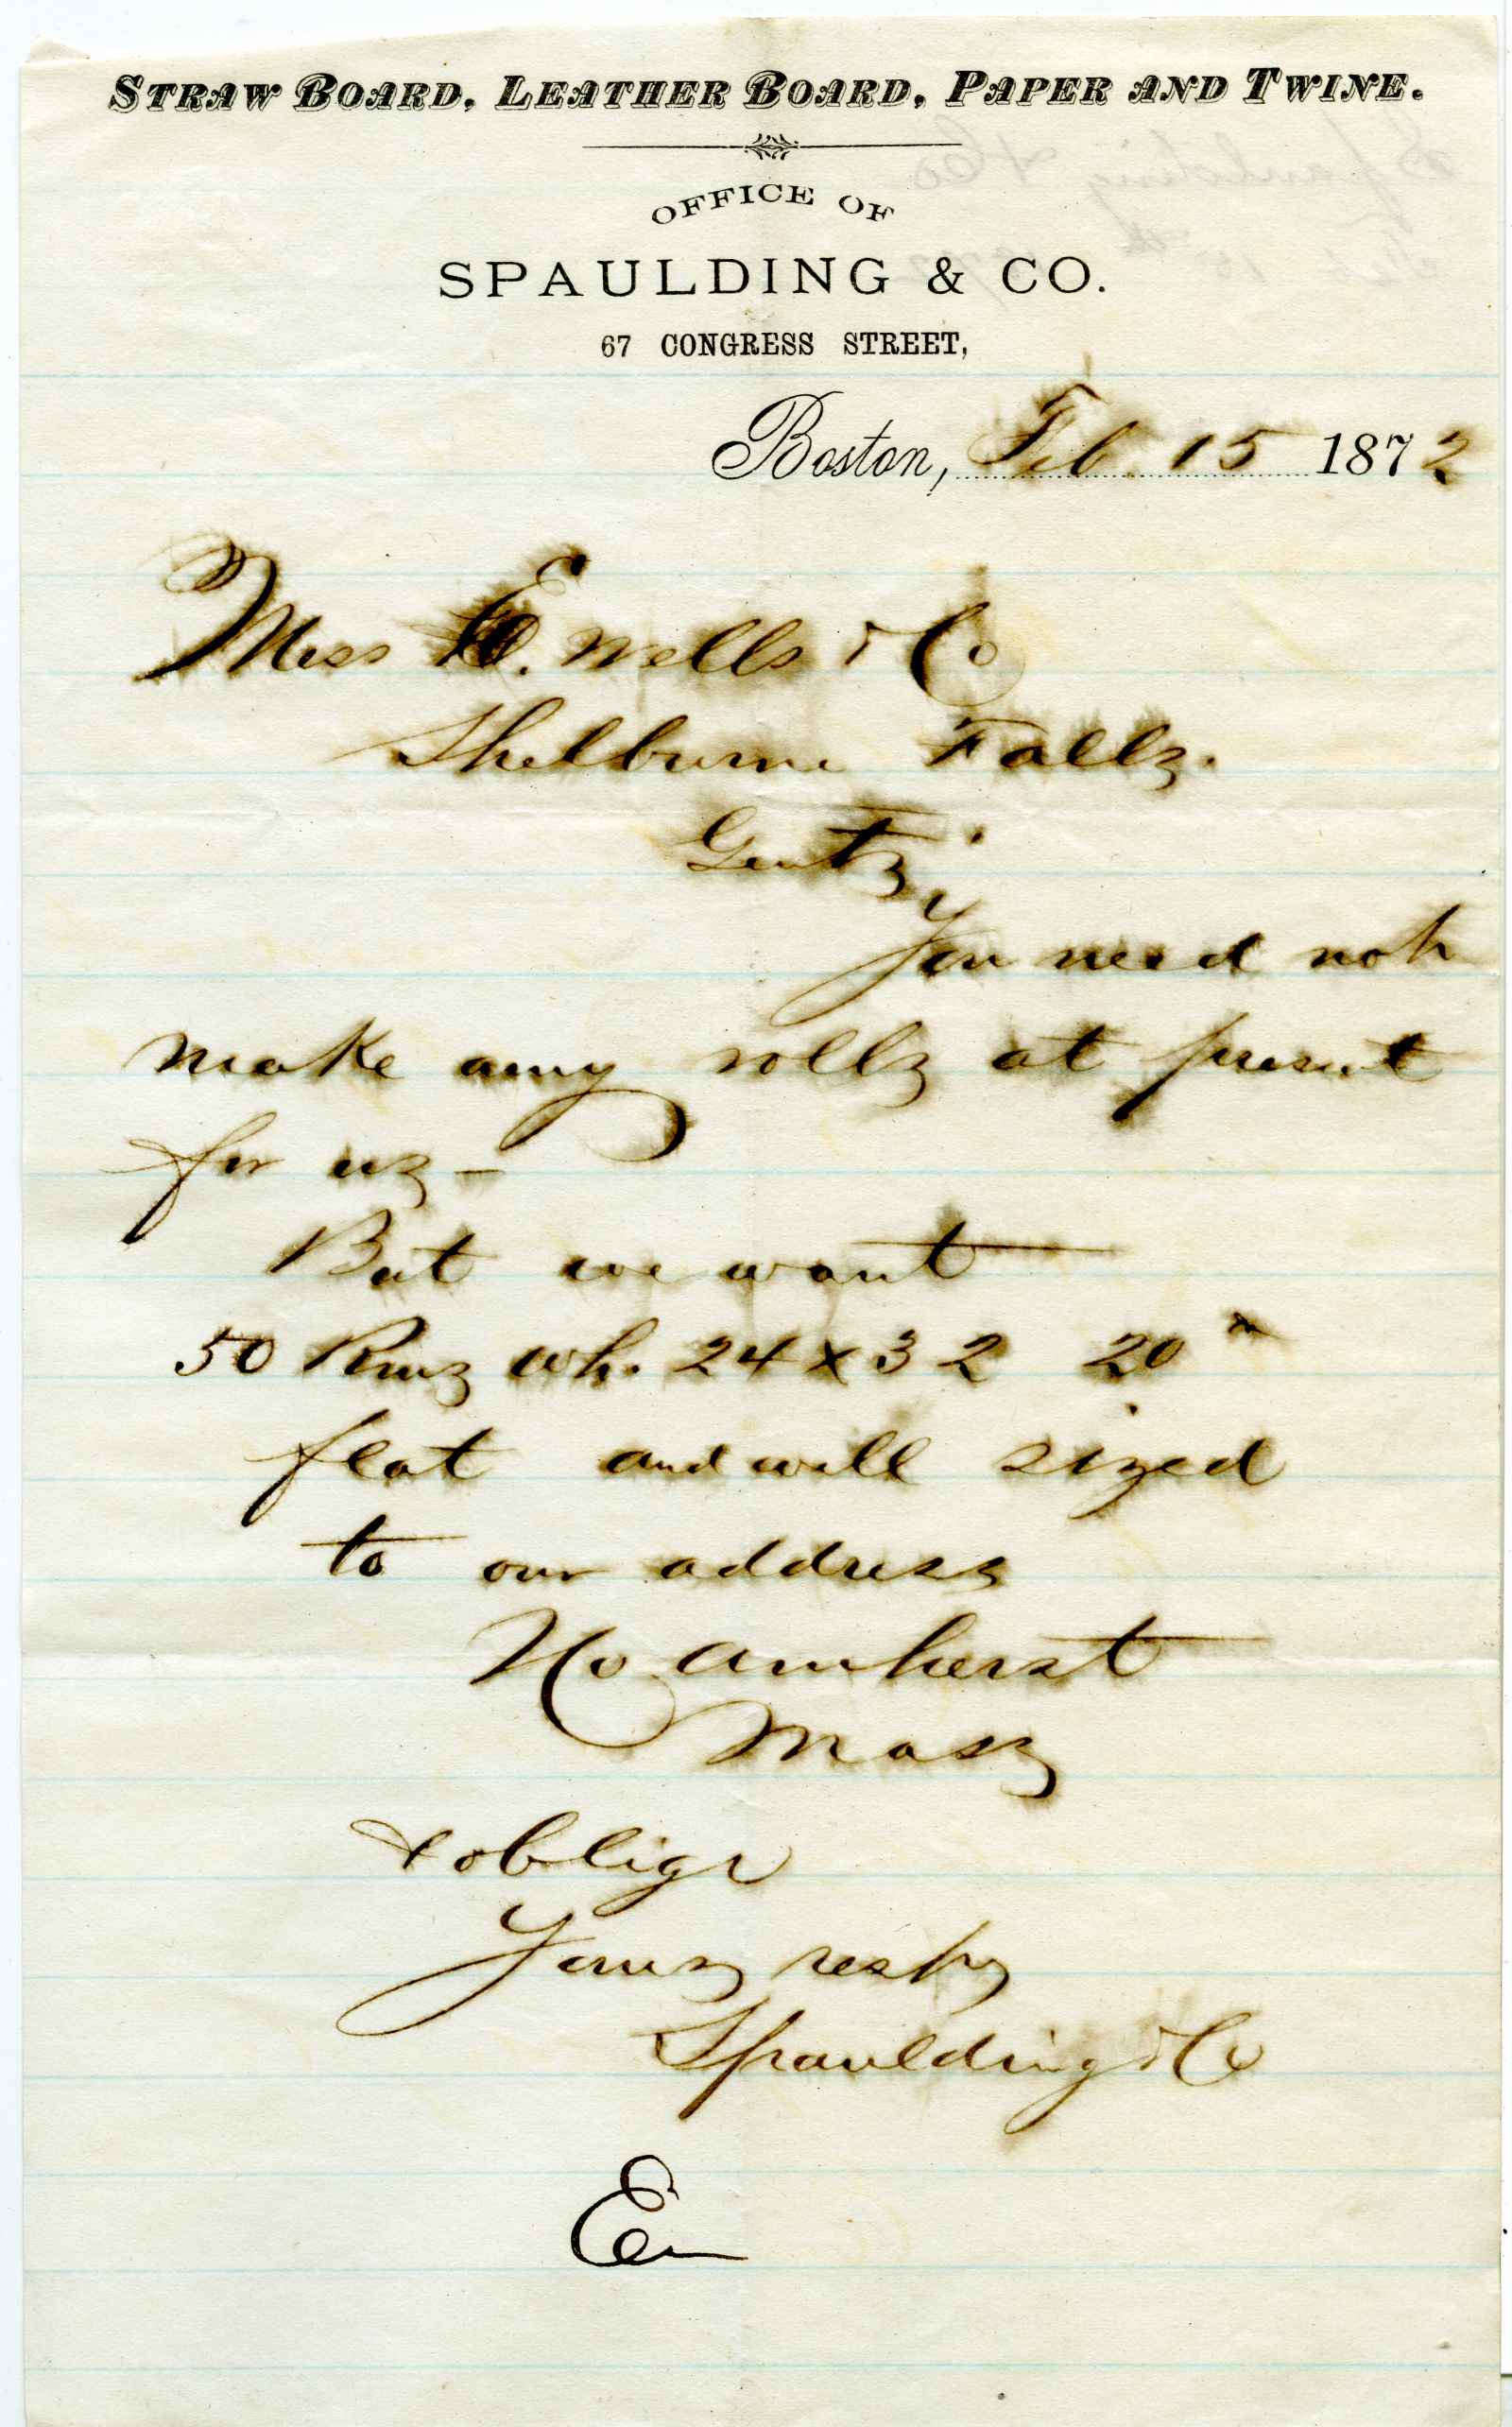 STRAW BOARD, LEATHER BOARD, PAPER AND TWINE.
OFFICE OF
SPAULDING & CO.
67 CONGRESS STREET,
Boston, Feb. 15 1872
Mess E. Wells & Co
Shelburne Falls.
Gents
You need not
make any rolls at present
for us —
But we want
50 Rms Wh. 24 x 32 20
flat and well sized
to our address
No. Amherst
Mass
& oblige
Yours respy
Spaulding & Co